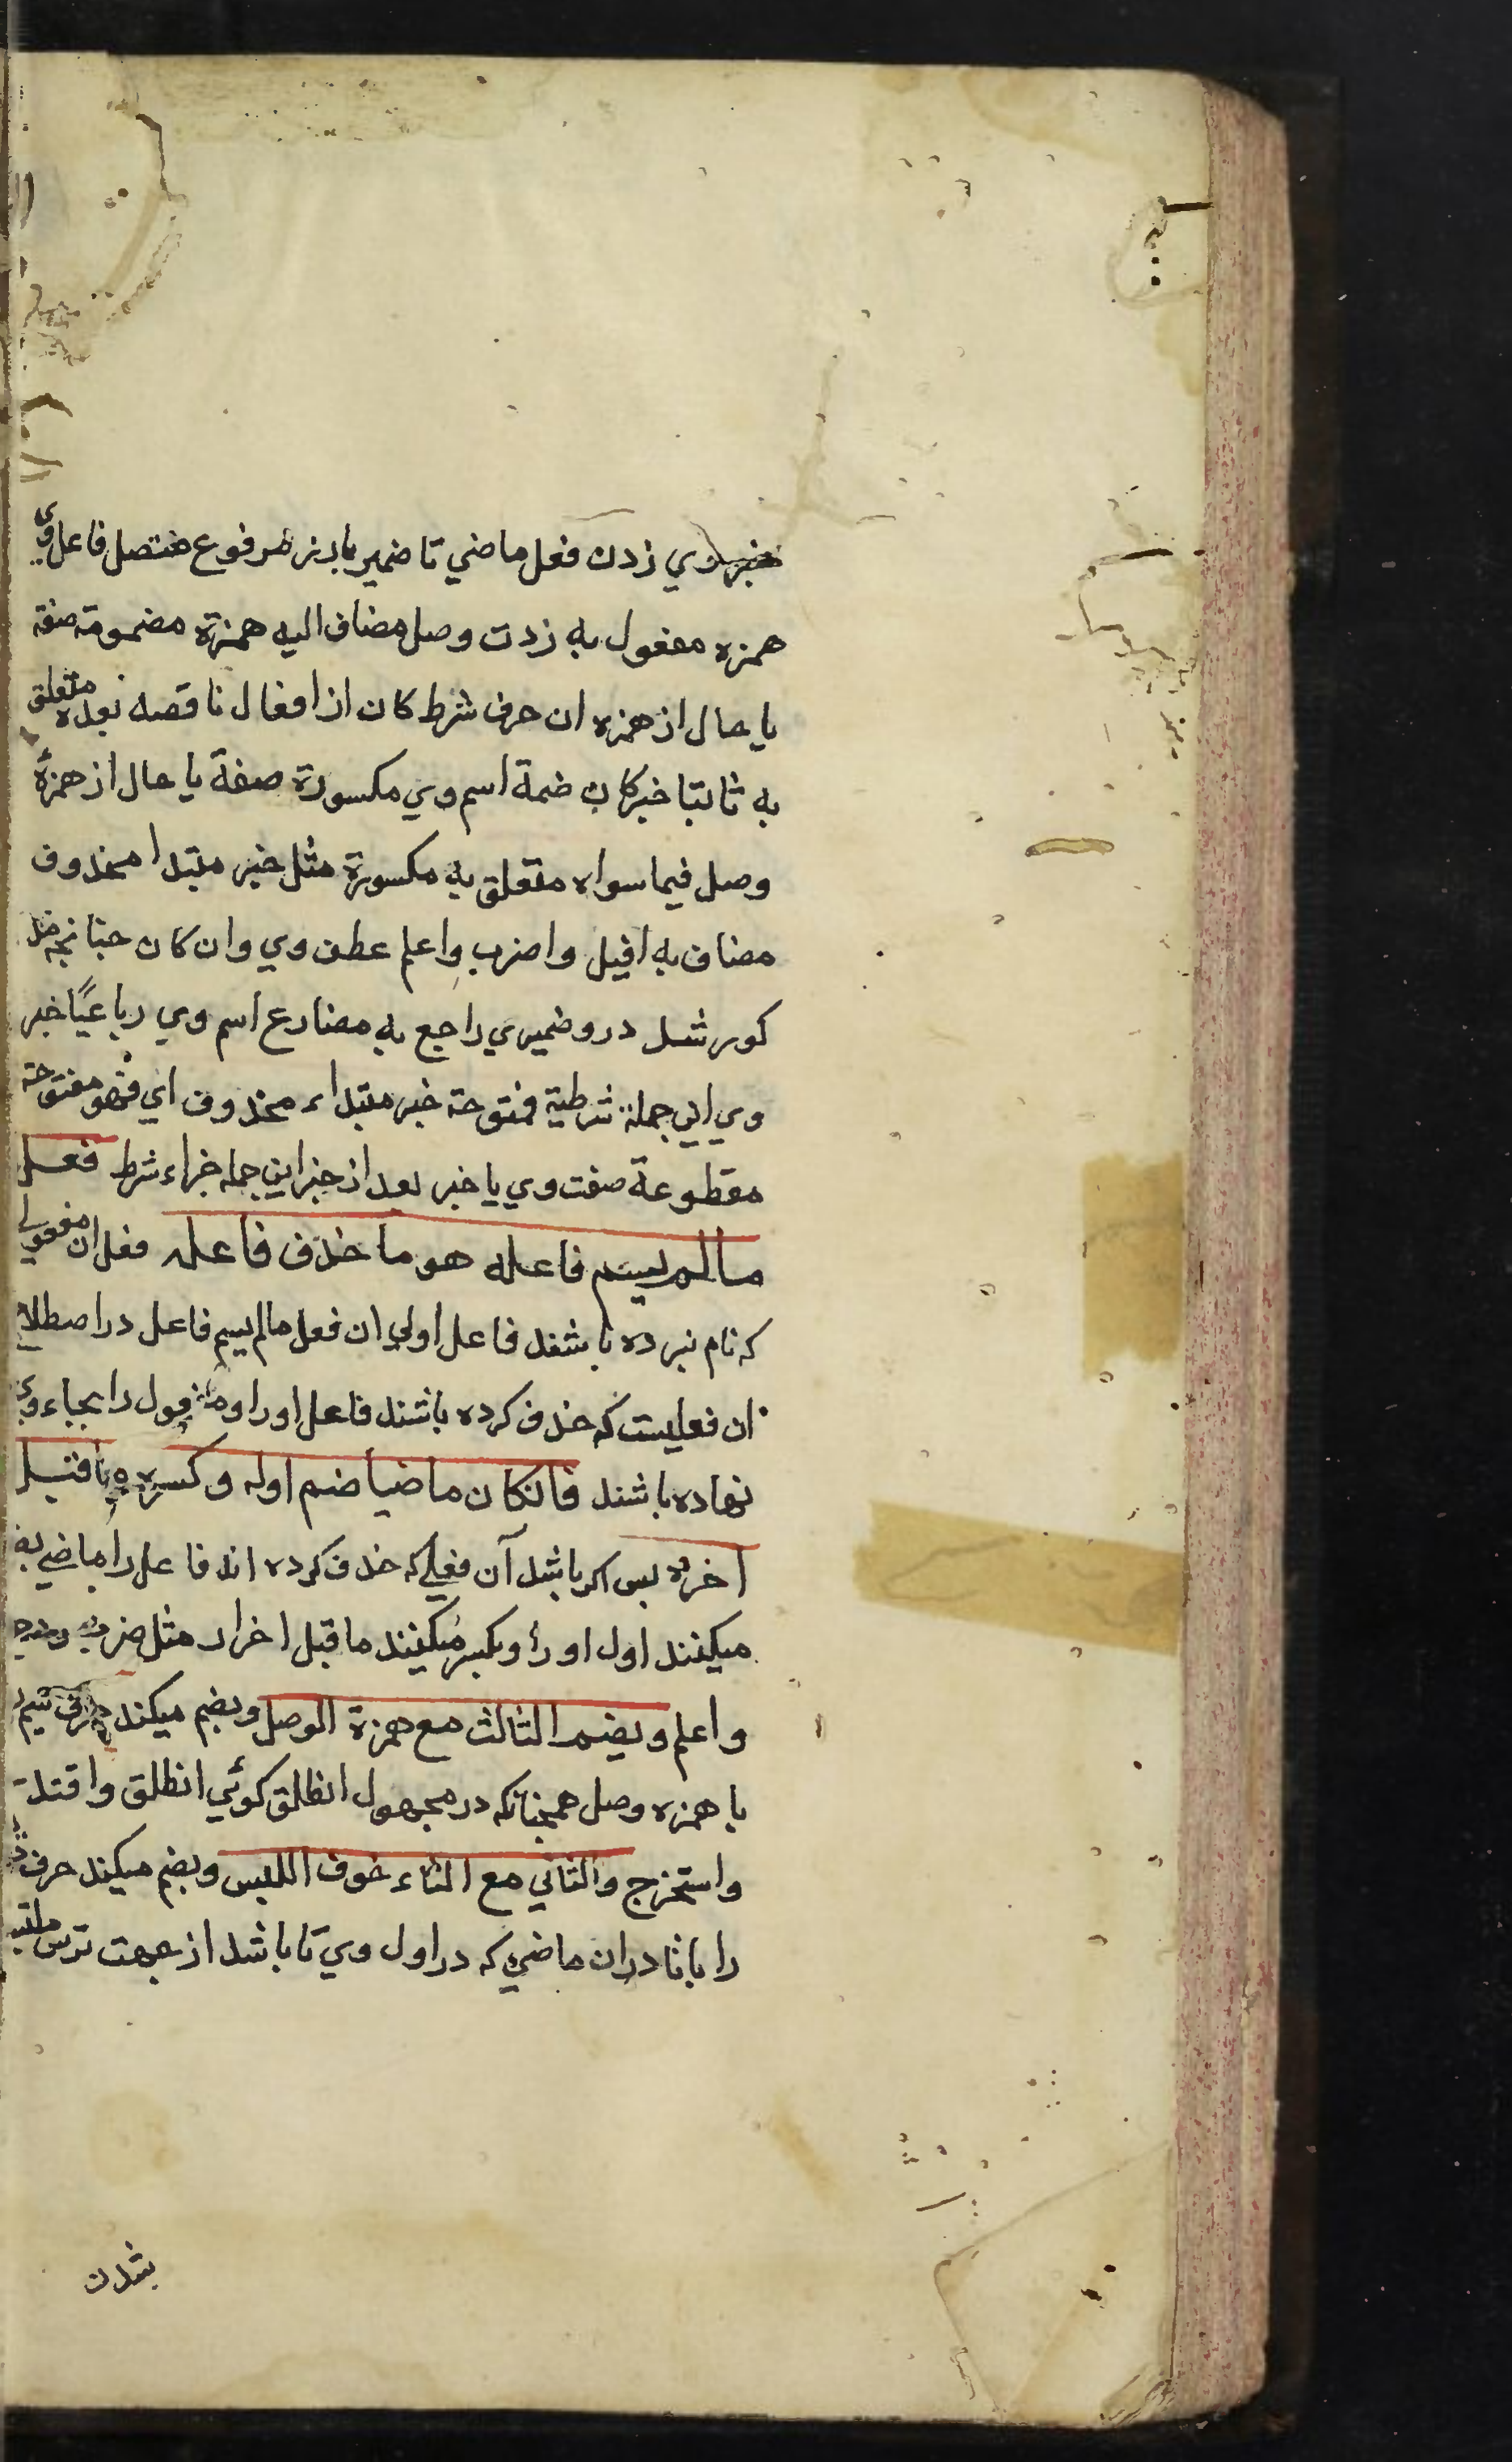 خبر وي زدن فعل ماضي تا ضمير بارز مرفوع متصل فاعل وي
همزه مفعول به زدت وصل مضاف اليه همزة مضمومة صفة
يا حال از همزه ان حرف شرط كان از افعال ناقصه بعده متعلق
به ثابتا خبر كان ضمة اسم وي مكسورة صفة يا حال از همزۀ
وصل فيما سواه متعلق به مكسورة مثل خبر مبتدا محذوف
مضاف به اقتل واضرب واعلم عطف وي وان كان چنانچه مذ
كور شد درو ضميري راجع به مضارع اسم وي رباعيًا خبر
وي اين جملة شرطية مفتوحة خبر مبتداء محذوف اي فهو مفتوحة
مقطوعة صفت وي يا خبر بعد از خبر اين جمله جزاء شرط فعل
مالم يسم فاعله هو ما حذف فاعله فعل ان مفعولي
كه نام نبرده باشند فاعل اولي ان فعل مالم يسم فاعل در اصطلاح
ان فعليست كه حذف كرده باشند فاعل او را ومفعول را بجاء وي
نهاده باشند فانكان ماضيا ضم اوله وكسر ما قبل
اخره پس اكر باشد آن فعلي كه حذف كرده اند فاعل را ماضي بضم
ميكنند اول او را وبكسر ميكنند ما قبل اخر او مثل ضرب
واعلم ويضم الثالث مع همزة الوصل وبضم ميكند حرف سيم
با همزه وصل همچنانكه در مجهول انطلق كوئي انطلق واقتلت
واستخرج والثاني مع التاء خوف اللبس وبضم ميكند حرف
را با تا در ان ماضي كه در اول وي تا باشد از جهت ترس ملتبس
شدن